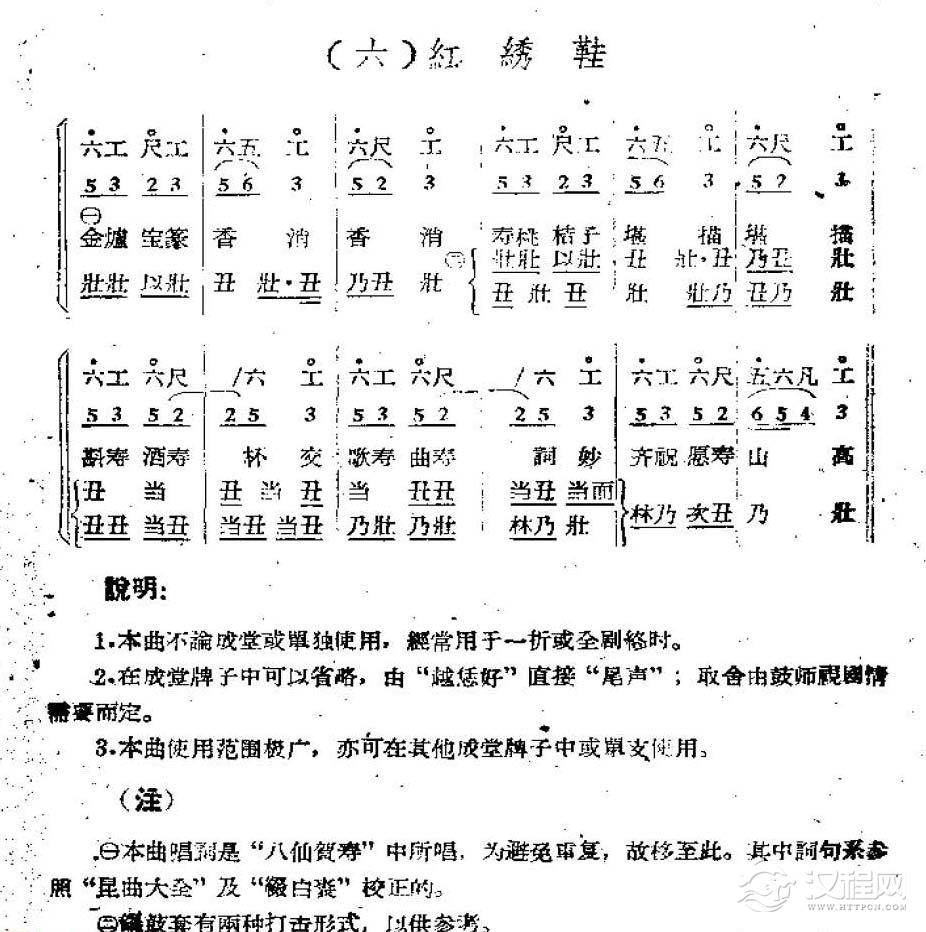 （六）紅 綉 鞋
六工 尺工 六五 工 六尺 工 六工 尺工 六五 工 六尺 工
5 3 2 3 5 6 3 5 2 3 5 3 2 3 5 6 3 5 2 3
㊀
金爐宝篆 香 消 香 消 寿桃 子 描 描
壯壯 以壯 丑 壯·丑 乃丑 壯 ㊁ 壯壯 以壯 丑 壯·丑 乃丑 壯
丑 壯 丑 壯 壯乃 丑乃 壯
六工 六尺 /六 工 六工 六尺 /六 工 六工 六尺 五六凡 工
5 3 5 2 2 5 3 5 3 5 2 2 5 3 5 3 5 2 6 5 4 3
斟寿酒寿 杯 交 歌寿曲寿 詞 妙 齐祝愿寿 山 高
丑 当 丑 当 丑 当 丑丑 当丑 当而
丑丑 当丑 当丑 当丑 乃壯 乃壯 林乃 壯 林乃 次丑 乃 壯
說明：
1.本曲不論成堂或單独使用，經常用于一折或全剧終时。
2.在成堂牌子中可以省略，由“越恁好”直接“尾声”；取舍由鼓师視劇情
需要而定。
3.本曲使用范围极广，亦可在其他成堂牌子中或單支使用。
（注）
㊀本曲唱詞是“八仙賀寿”中所唱，为避免重复，故移至此。其中詞句系参
照“昆曲大全”及“綴白裘”校正的。
㊁鑼鼓套有兩种打击形式，以供参考。
汉程网
WWW.HTTPCN.COM